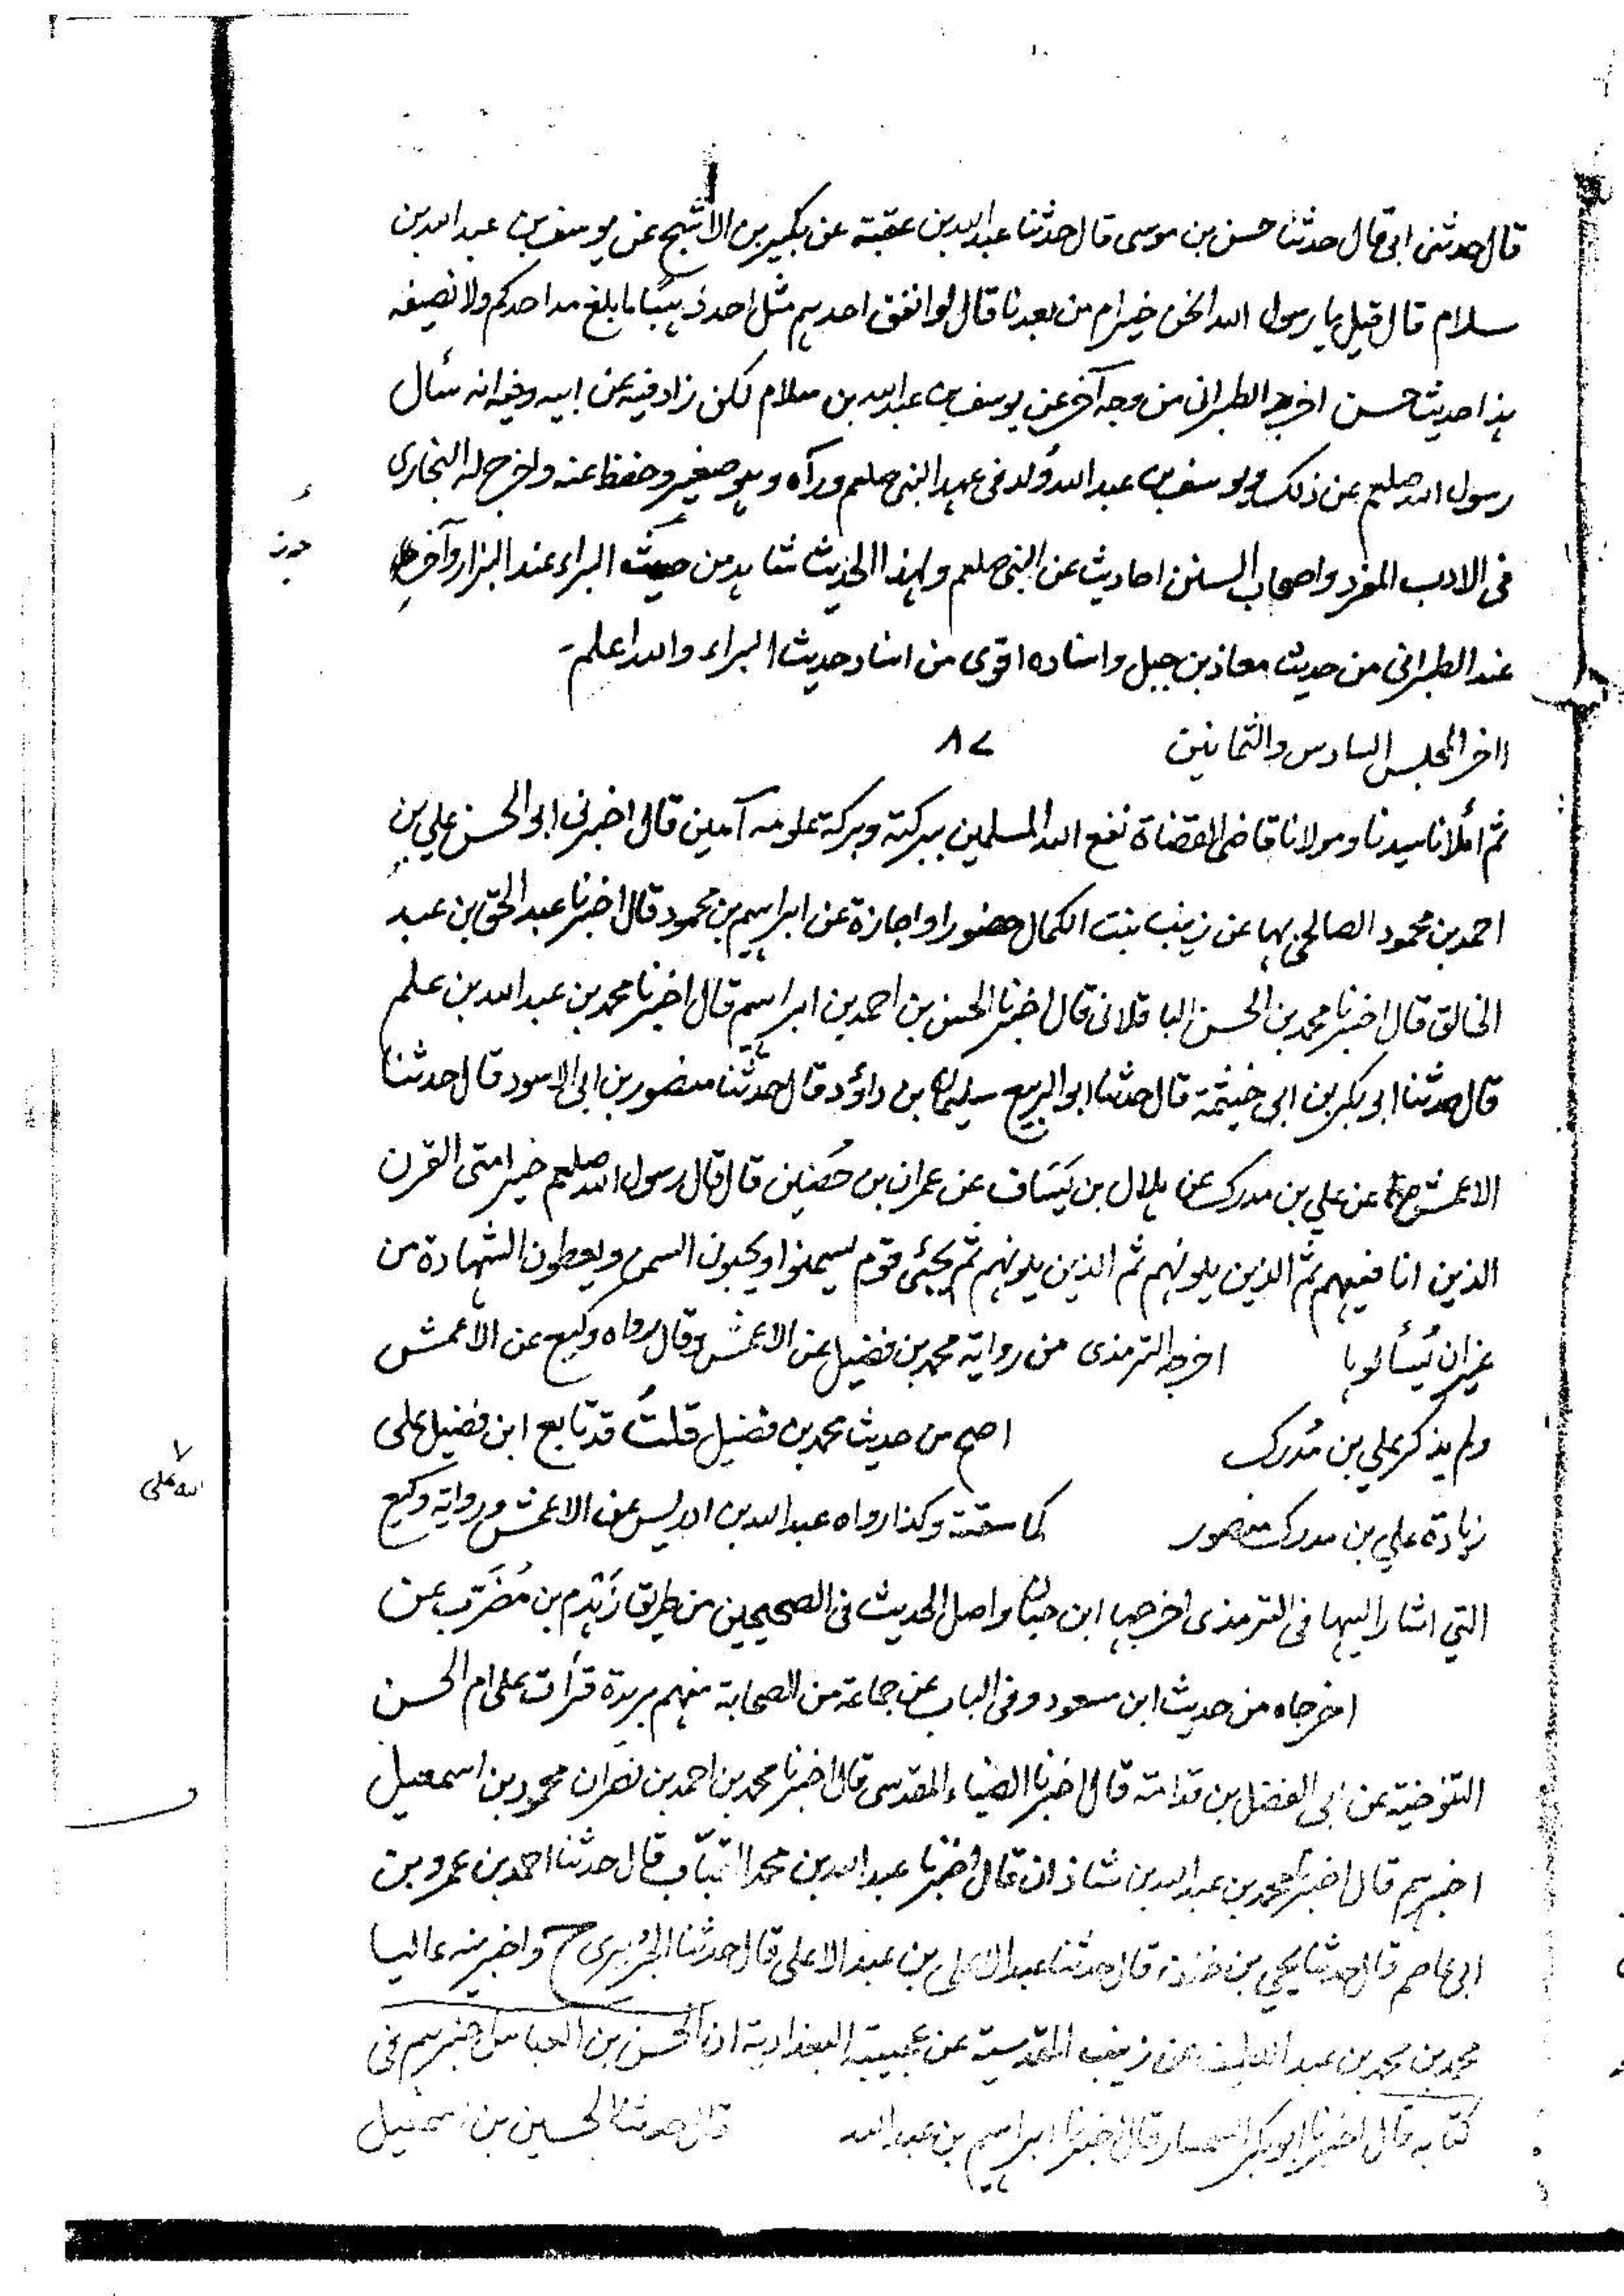 قال حدثنى ابى قال حدثنا حسن بن موسى قال حدثنا عبد الله بن عقبة عن بكير بن الاشج عن يوسف بن عبد الله بن
سلام قال قيل يا رسول الله انحن خير ام من بعدنا قال لو انفق احدهم مثل احد ذهبًا ما بلغ مد احدكم ولا نصيفه
هذا حديث حسن اخرجه الطبرانى من وجه آخر عن يوسف بن عبد الله بن سلام لكن زاد فيه عن ابيه وفيه انه سأل
رسول الله صلعم عن ذلك ويوسف بن عبد الله وُلد فى عهد النبى صلعم ورآه وهو صغير وحفظ عنه واخرج له البخارى
فى الادب المفرد واصحاب السنن احاديث عن النبى صلعم ولهذا الحديث شاهد من حديث البراء عند البزار وآخر
عند الطبرانى من حديث معاذ بن جبل واسناده اقوى من اسناد حديث البراء والله اعلم
اخر المجلس السادس والثمانين ٨٧
ثم أملانا سيدنا ومولانا قاضى القضاة نفع الله المسلمين ببركته وبركة علومه آمين قال اخبرنى ابو الحسن علي بن
احمد بن محمود الصالحى بها عن زينب بنت الكمال حضورا واجازة عن ابراهيم بن محمود قال اخبرنا عبد الحق بن عبد
الخالق قال اخبرنا محمد بن الحسن الباقلانى قال اخبرنا الحسن بن احمد بن ابراهيم قال اخبرنا محمد بن عبد الله بن علم
قال حدثنا ابو بكر بن ابى خيثمة قال حدثنا ابو الربيع سليمان بن داؤد قال حدثنا منصور بن ابى الاسود قال حدثنا
الاعمش عن علي بن مدرك عن هلال بن يَسَاف عن عمران بن حُصَين قال قال رسول الله صلعم خير امتى القرن
الذين انا فيهم ثم الذين يلونهم ثم الذين يلونهم ثم يجئ قوم يسمنوا ويحبون السمن ويعطون الشهادة من
غير ان يُسألوها اخرجه الترمذى من رواية محمد بن فضيل عن الاعمش وقال رواه وكيع عن الاعمش
ولم يذكر علي بن مُدرك اصح من حديث محمد بن فضيل قلتُ قد تابع ابن فضيل على
زيادة علي بن مدرك منصور كما سقته وكذا رواه عبد الله بن ادريس عن الاعمش ورواية وكيع
التي اشار اليها فى الترمذى اخرجها ابن حبان واصل الحديث فى الصحيحين من طريق زَهْدم بن مُضَرّب عن
اخرجاه من حديث ابن مسعود وفى الباب عن جماعة من الصحابة منهم بريدة قرأت على ام الحسن
التنوخية عن ابى الفضل بن قدامة قال اخبرنا الضياء المقدسى قال اخبرنا محمد بن احمد بن نصر ان محمود بن اسمعيل
اخبرهم قال اخبرنا محمد بن عبد الله بن شاذان قال اخبرنا عبد الله بن محمد القبّاب قال حدثنا احمد بن عمرو بن
ابى عاصم قال حدثنا يحيي بن خلف قال حدثنا عبد الاعلى بن عبد الاعلى قال حدثنا الجُريرى ح واخبرنيه عاليا
محمد بن محمد بن عبد اللطيف عن زينب المقدسية عن عجيبة البغدادية ان الحسن بن العباس اخبرهم فى
كتابه قال اخبرنا ابو بكر السمسار قال اخبرنا ابراهيم بن عبد الله قال حدثنا الحسين بن اسمعيل